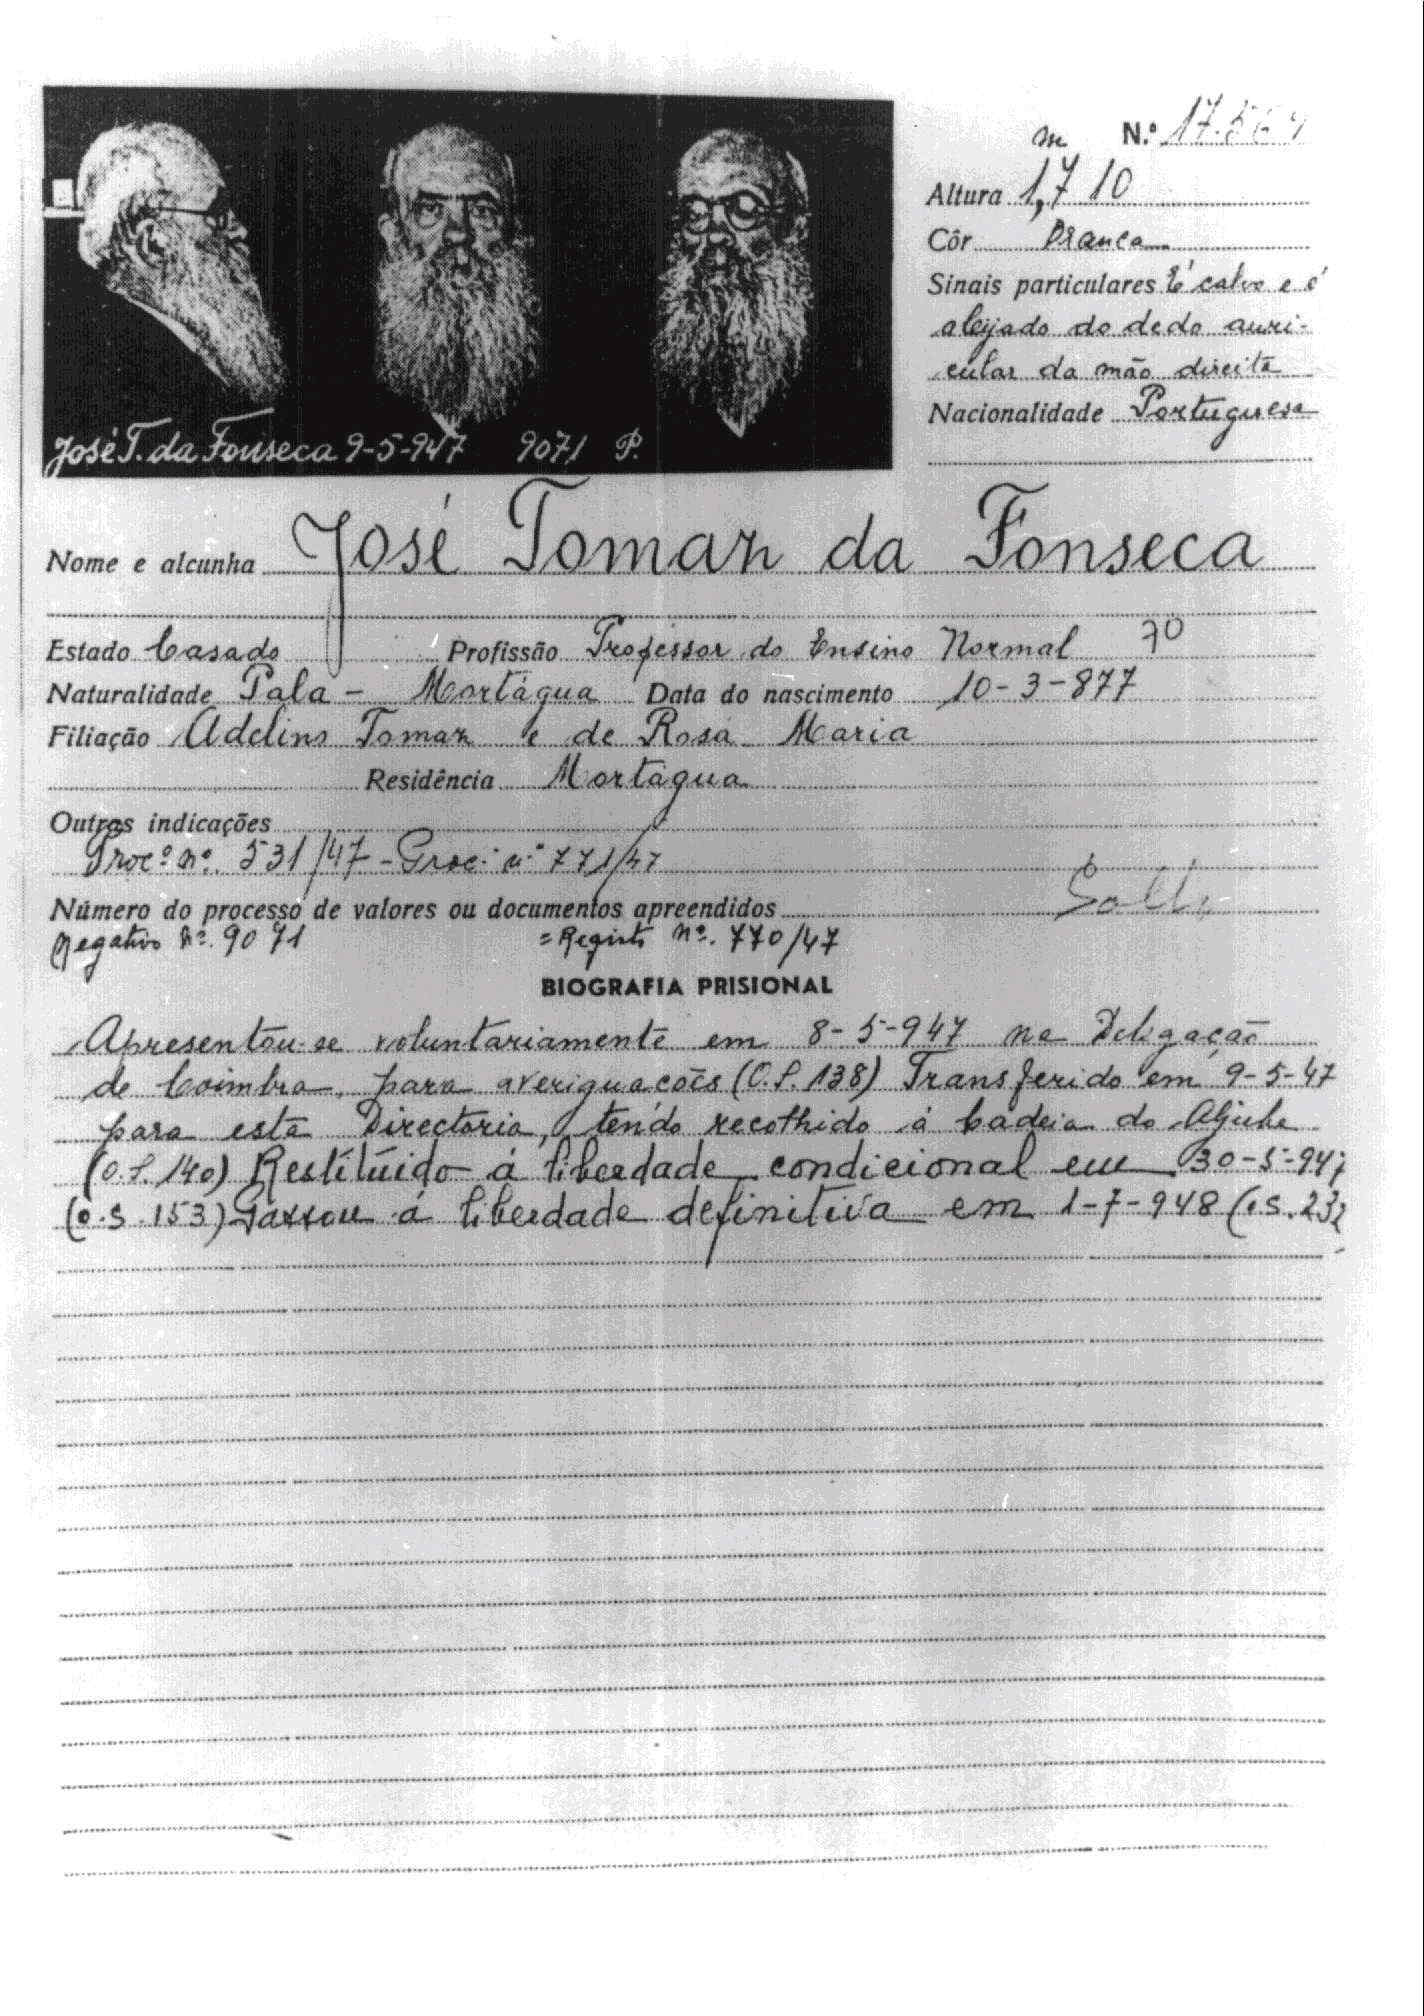 N.º 17.569
m
Altura 1,710
Côr Branca
Sinais particulares É calvo e é
aleijado do dedo auri-
cular da mão direita
Nacionalidade Portuguesa
José T. da Fonseca 9-5-947 9071 P.
Nome e alcunha José Tomaz da Fonseca
Estado Casado Profissão Professor do Ensino Normal 70
Naturalidade Pala - Mortágua Data do nascimento 10-3-877
Filiação Adelino Tomaz e de Rosa Maria
Residência Mortágua
Outras indicações
Proc.º nº. 531/47 - Proc. n.º 771/47
Número do processo de valores ou documentos apreendidos
Negativo Nº. 9071 = Registo nº. 770/47
BIOGRAFIA PRISIONAL
Apresentou-se voluntariamente em 8-5-947 na Delegação
de Coimbra, para averiguações (O.S. 138) Transferido em 9-5-47
para esta Directoria, tendo recolhido á Cadeia do Aljube
(O.S. 140) Restituido á liberdade condicional em 30-5-947
(O.S. 153) Passou á liberdade definitiva em 1-7-948 (O.S. 232